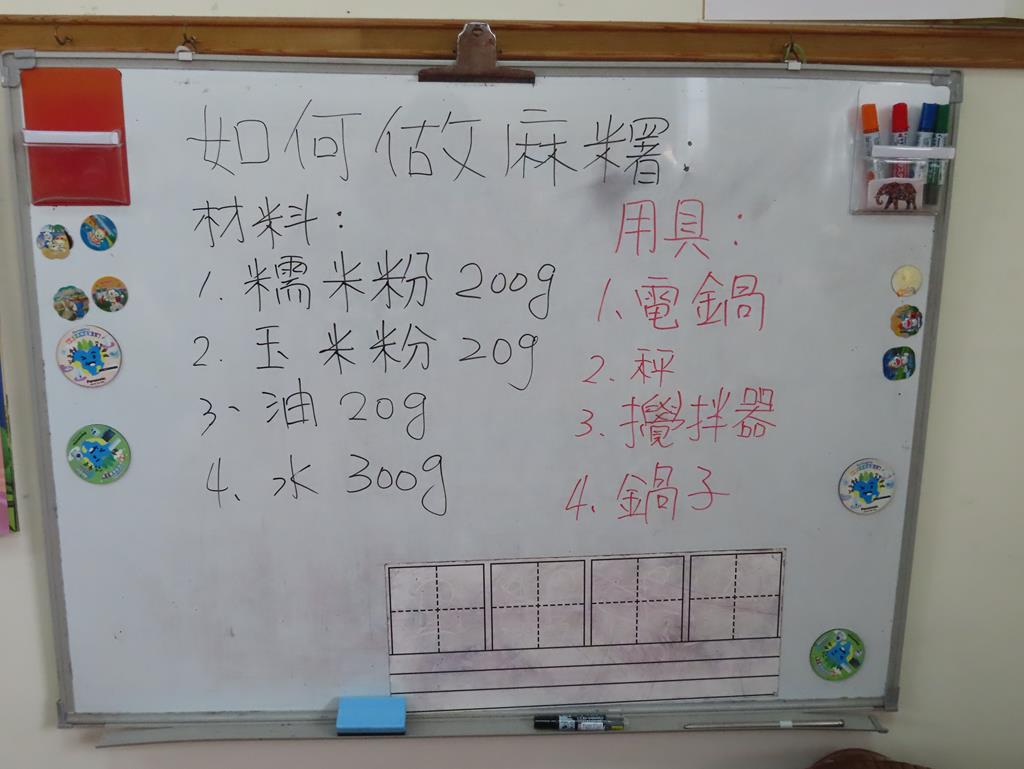 如何做麻糬：
材料：
1. 糯米粉 200g
2. 玉米粉 20g
3、油 20g
4、水 300g
用具：
1、電鍋
2. 秤
3. 攪拌器
4. 鍋子